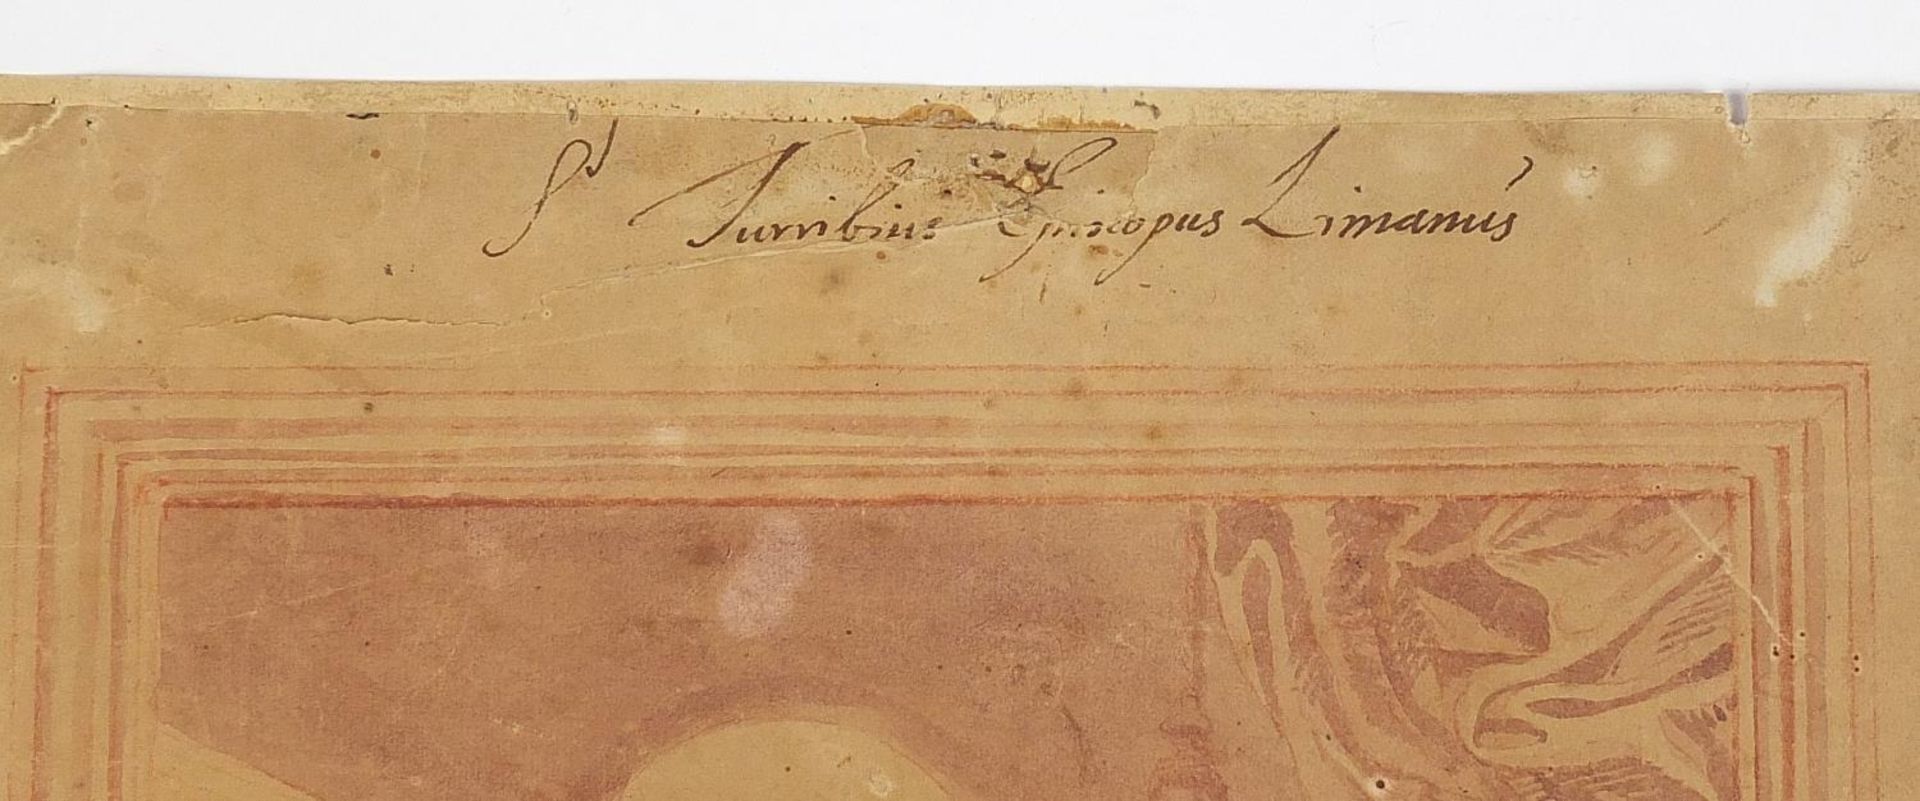 S.t Turribius Episcopus Limanus